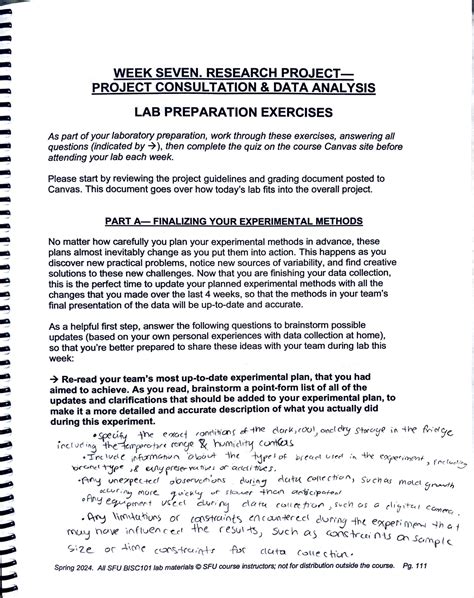 WEEK SEVEN. RESEARCH PROJECT—
PROJECT CONSULTATION & DATA ANALYSIS
LAB PREPARATION EXERCISES
As part of your laboratory preparation, work through these exercises, answering all
questions (indicated by →), then complete the quiz on the course Canvas site before
attending your lab each week.
Please start by reviewing the project guidelines and grading document posted to
Canvas. This document goes over how today's lab fits into the overall project.
PART A— FINALIZING YOUR EXPERIMENTAL METHODS
No matter how carefully you plan your experimental methods in advance, these
plans almost inevitably change as you put them into action. This happens as you
discover new practical problems, notice new sources of variability, and find creative
solutions to these new challenges. Now that you are finishing your data collection,
this is the perfect time to update your planned experimental methods with all the
changes that you made over the last 4 weeks, so that the methods in your team's
final presentation of the data will be up-to-date and accurate.
As a helpful first step, answer the following questions to brainstorm possible
updates (based on your own personal experiences with data collection at home),
so that you're better prepared to share these ideas with your team during lab this
week:
→ Re-read your team's most up-to-date experimental plan, that you had
aimed to achieve. As you read, brainstorm a point-form list of all of the
updates and clarifications that should be added to your experimental plan, to
make it a more detailed and accurate description of what you actually did
during this experiment.
• Specify the exact conditions of the dark, cool, and dry storage in the fridge
including the temperature range & humidity
• Include information about the type of bread used in the experiment, including
brand type, & any preservatives or additives.
• Any unexpected observations during data collection, such as mold growth
occuring more quickly or slower than anticipated
• Any equipment used during data collection, such as a digital camera.
• Any limitations or constraints encountered during the experiment that
may have influenced the results, such as constraints on sample
size or time constraints for data collection.
Spring 2024. All SFU BISC101 lab materials © SFU course instructors; not for distribution outside the course. Pg. 111